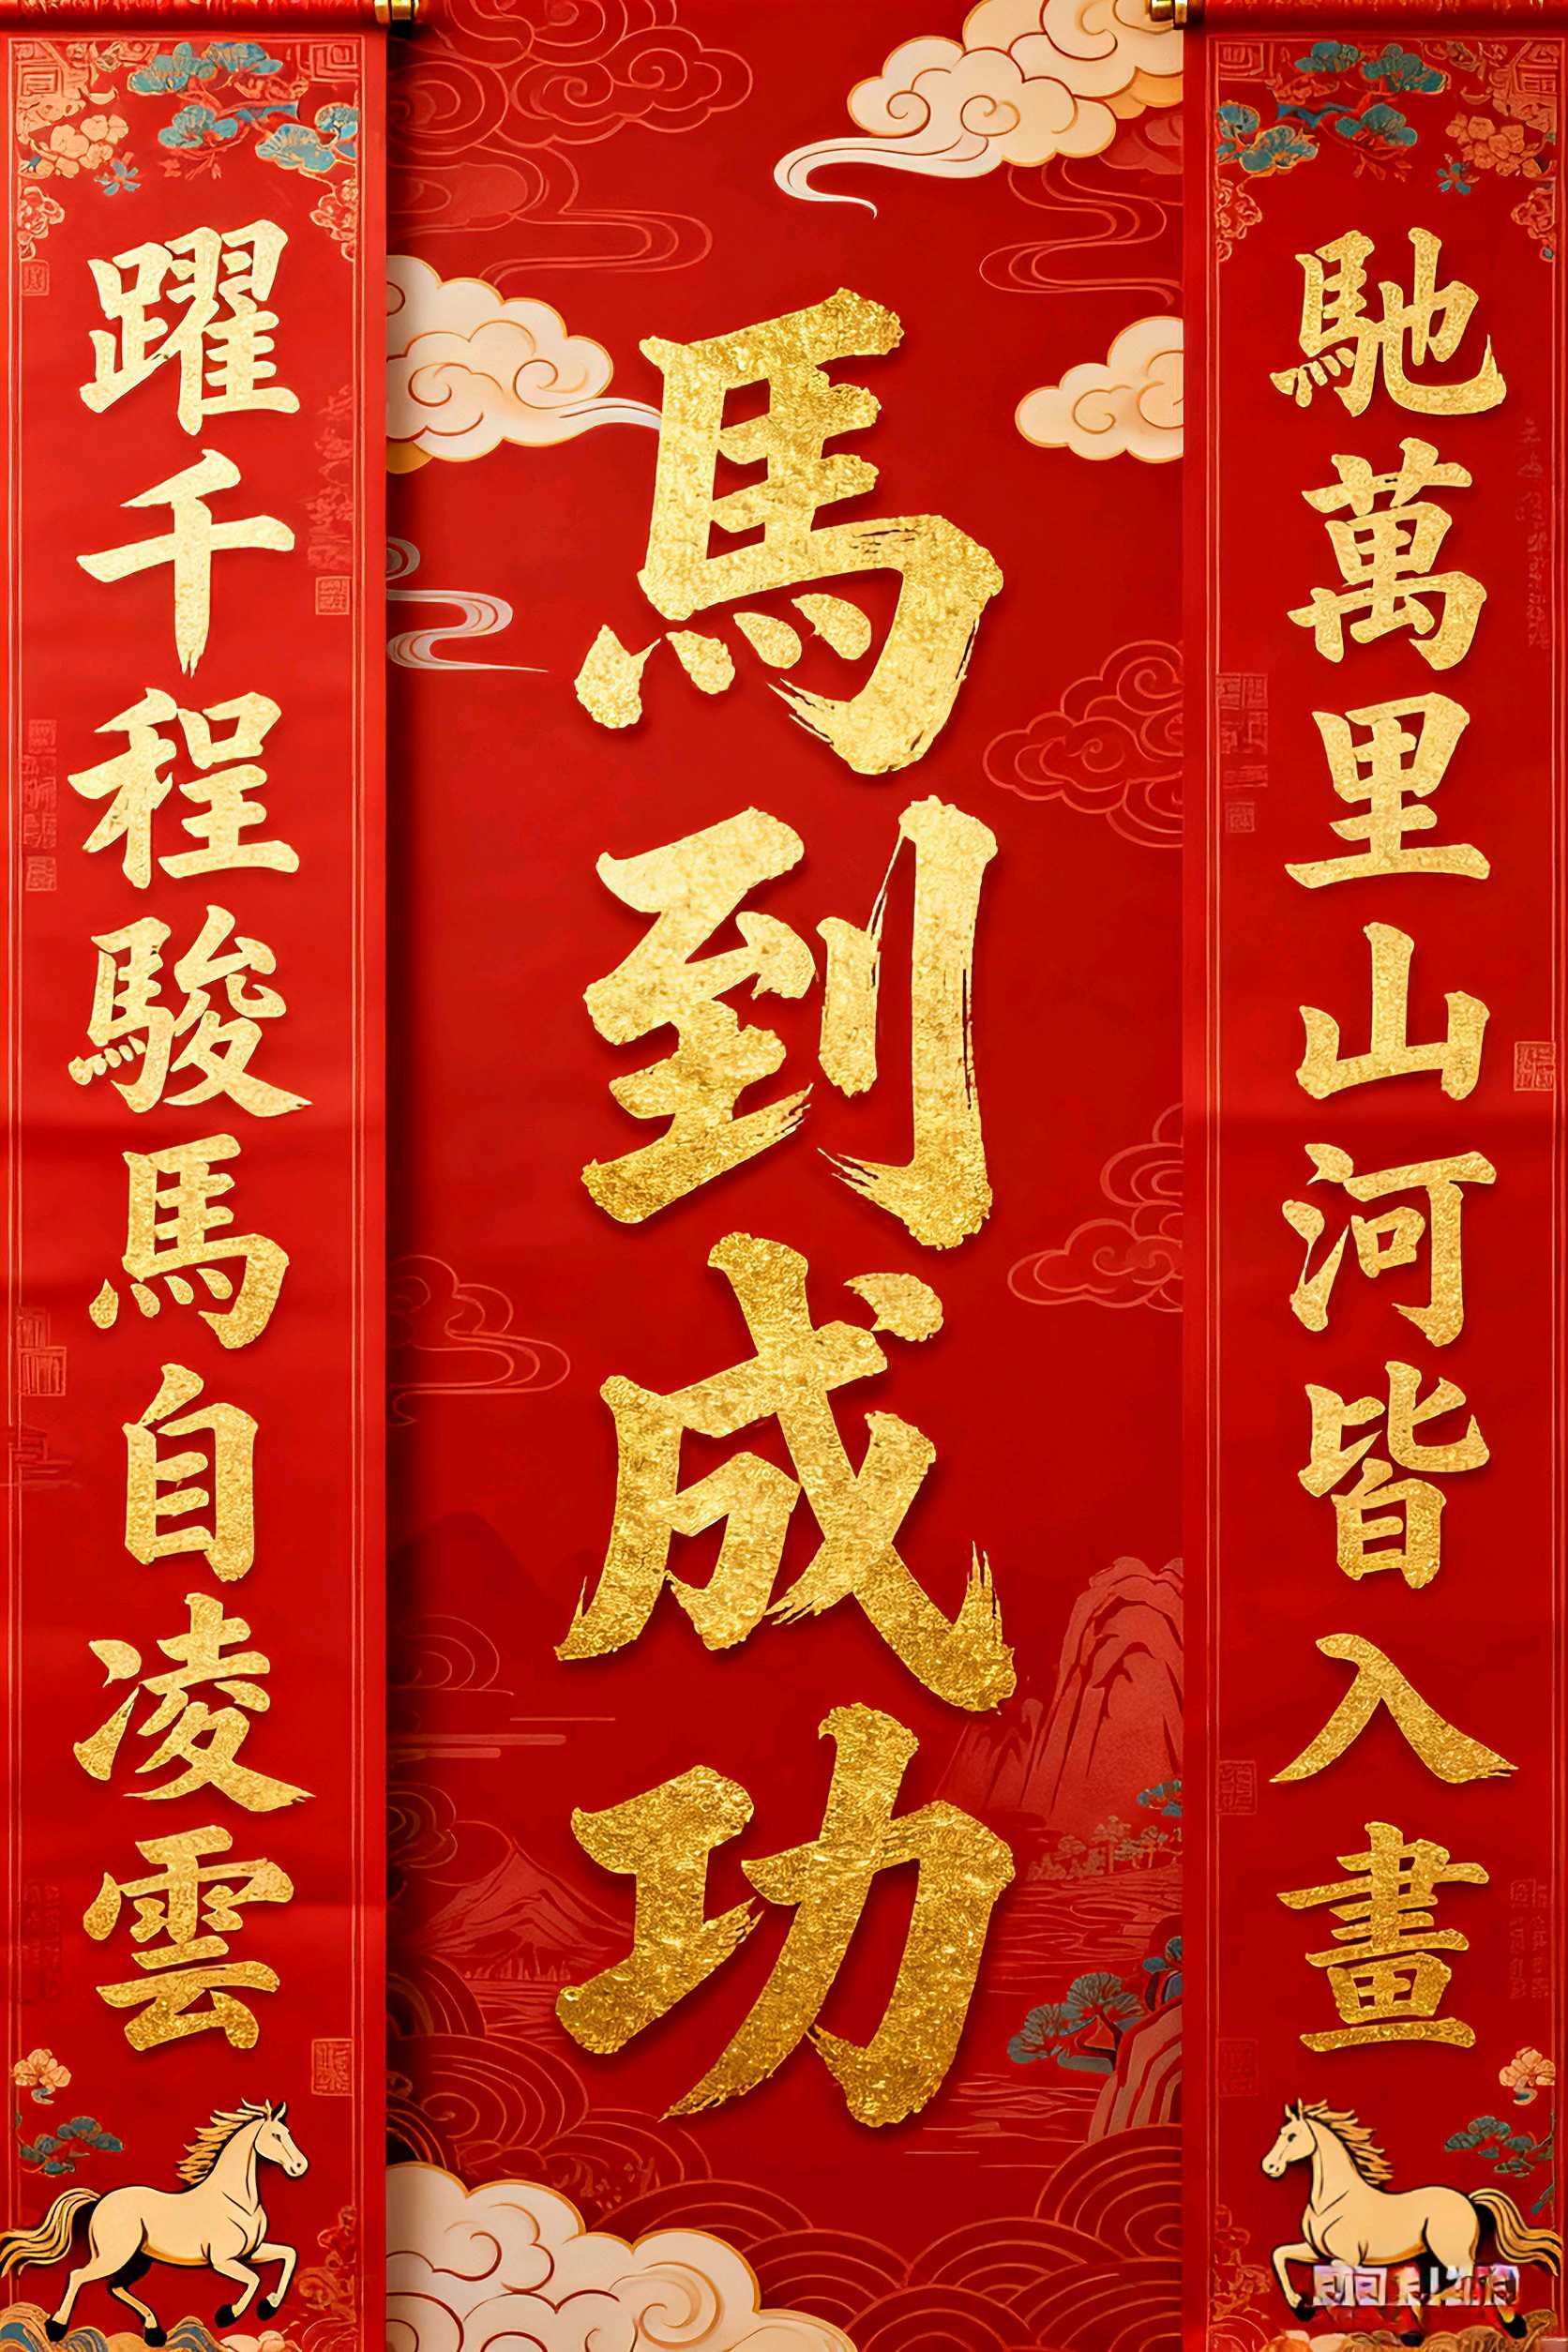 馳萬里山河皆入畫
馬到成功
躍千程駿馬自凌雲